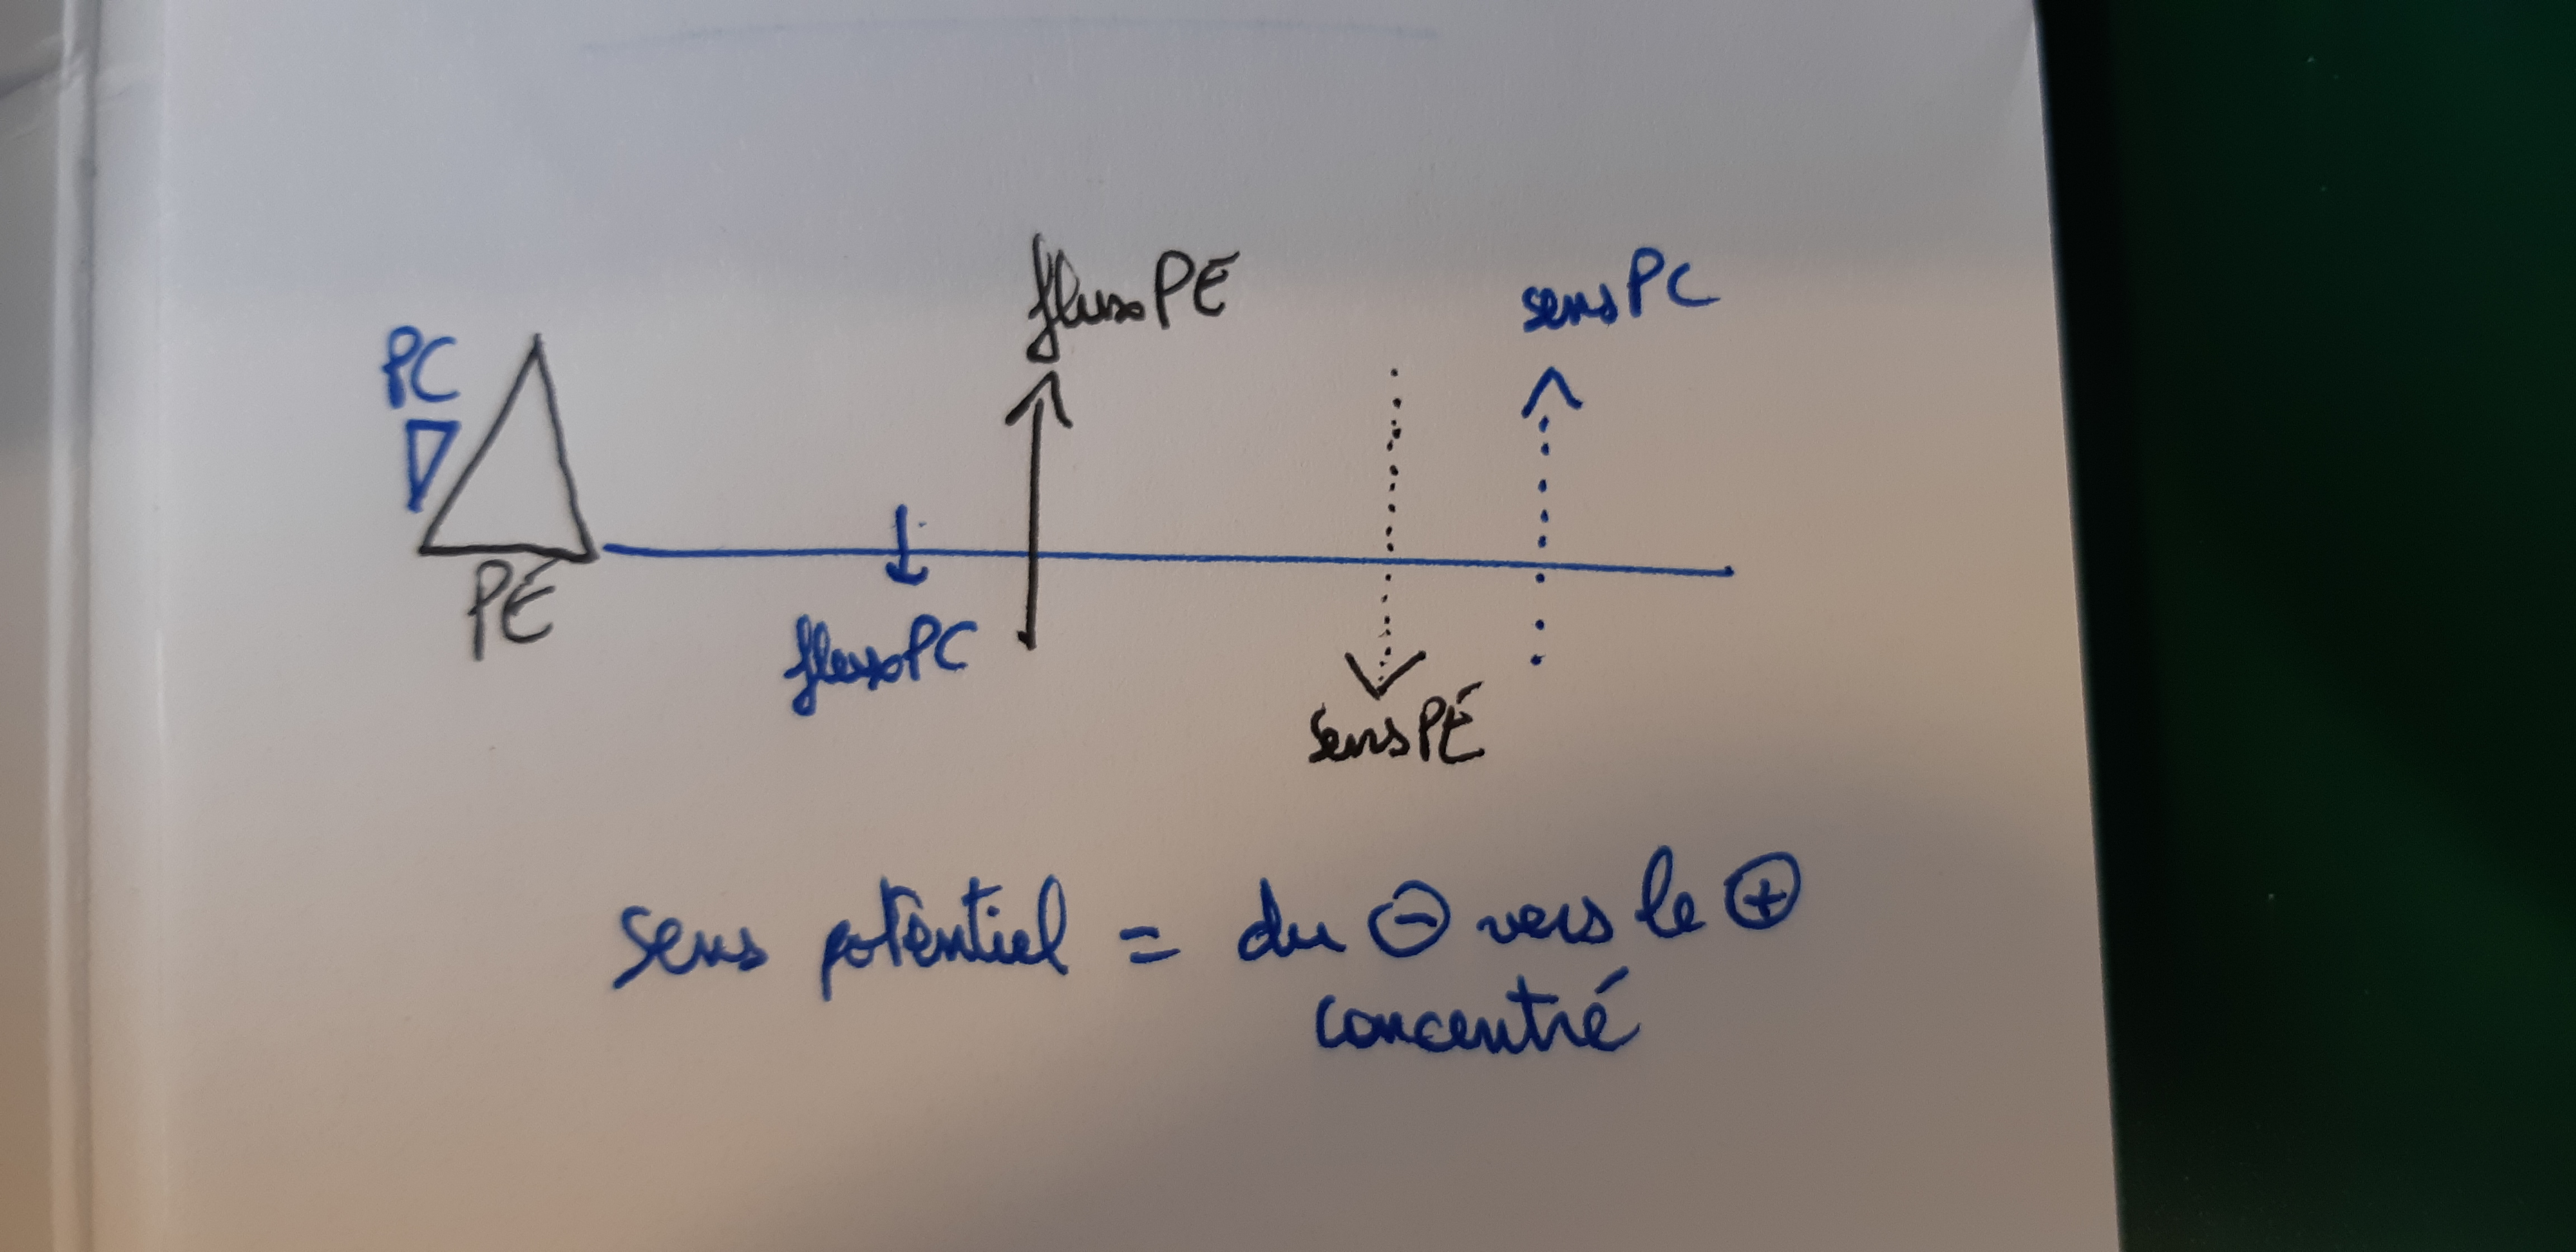 flux PE
sens PC
PC
PE
flux PC
sens PE
sens potentiel = du ⊖ vers le ⊕
concentré